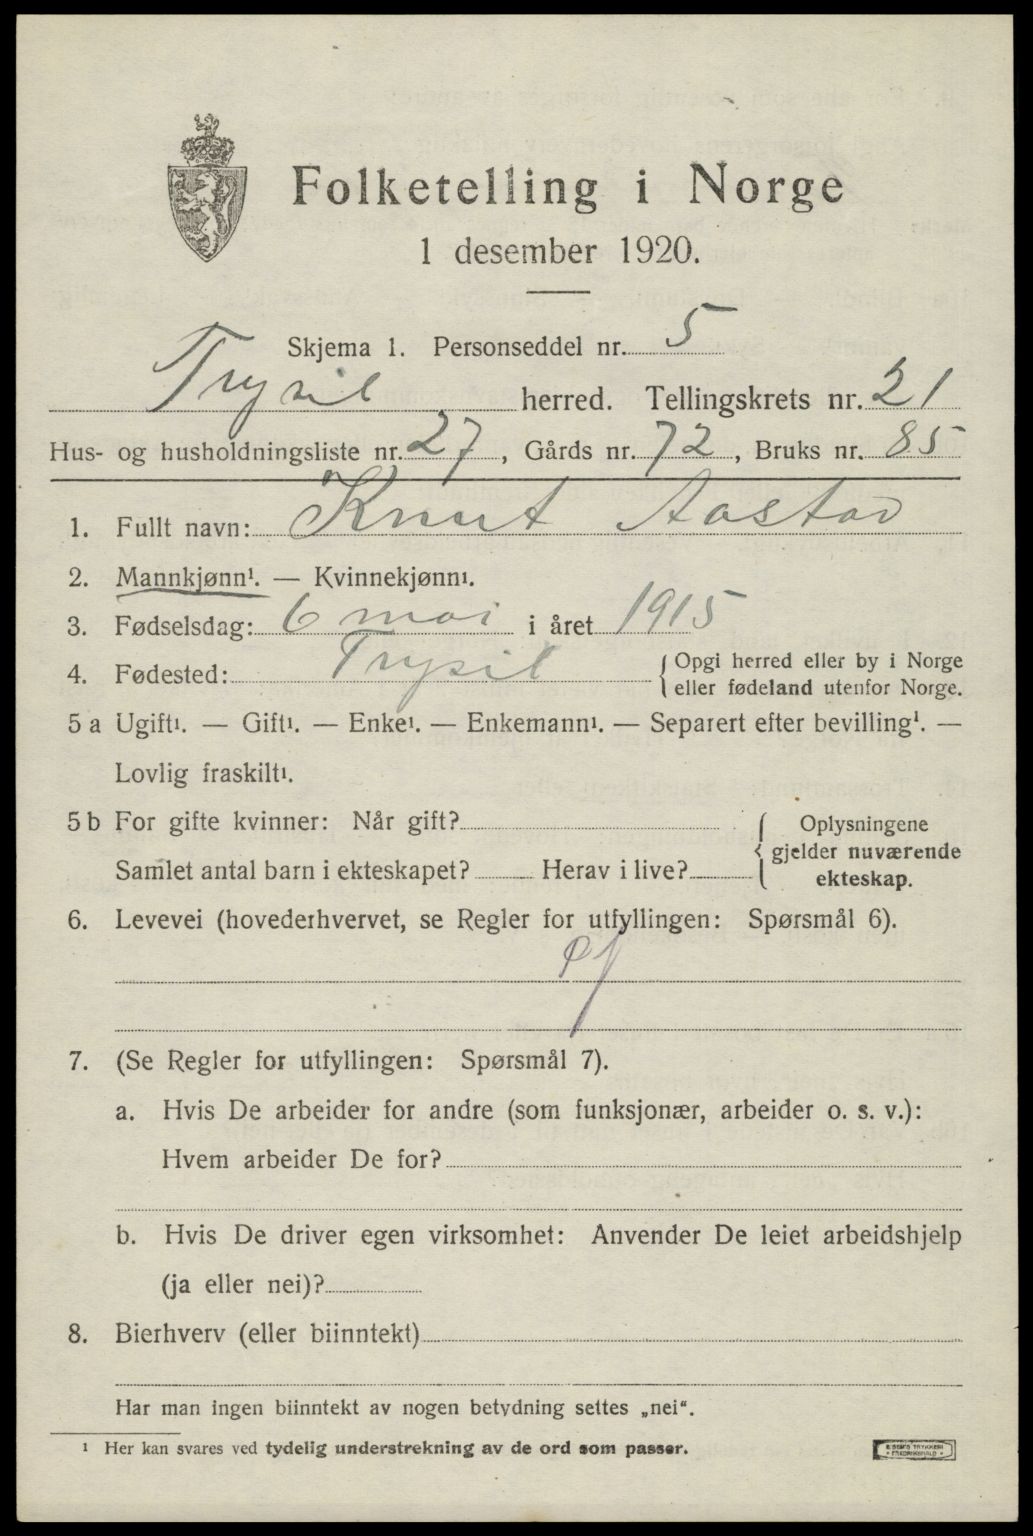 Folketelling i Norge
1 desember 1920.
Skjema 1. Personseddel nr. 5
Trysil herred. Tellingskrets nr. 21
Hus- og husholdningsliste nr. 27, Gårds nr. 72, Bruks nr. 85
1. Fullt navn: Knut Aastad
2. Mannkjønn¹. — Kvinnekjønn¹.
3. Fødselsdag: 6 mai i året 1915
4. Fødested: Trysil { Opgi herred eller by i Norge
eller fødeland utenfor Norge.
5 a Ugift¹. — Gift¹. — Enke¹. — Enkemann¹. — Separert efter bevilling¹. —
Lovlig fraskilt¹.
5 b For gifte kvinner: Når gift? { Oplysningene
gjelder nuværende
ekteskap.
Samlet antal barn i ekteskapet? Herav i live?
6. Levevei (hovederhvervet, se Regler for utfyllingen: Spørsmål 6).
7. (Se Regler for utfyllingen: Spørsmål 7).
a. Hvis De arbeider for andre (som funksjonær, arbeider o. s. v.):
Hvem arbeider De for?
b. Hvis De driver egen virksomhet: Anvender De leiet arbeidshjelp
(ja eller nei)?
8. Bierhverv (eller biinntekt)
Har man ingen biinntekt av nogen betydning settes „nei".
¹ Her kan svares ved tydelig understrekning av de ord som passer.